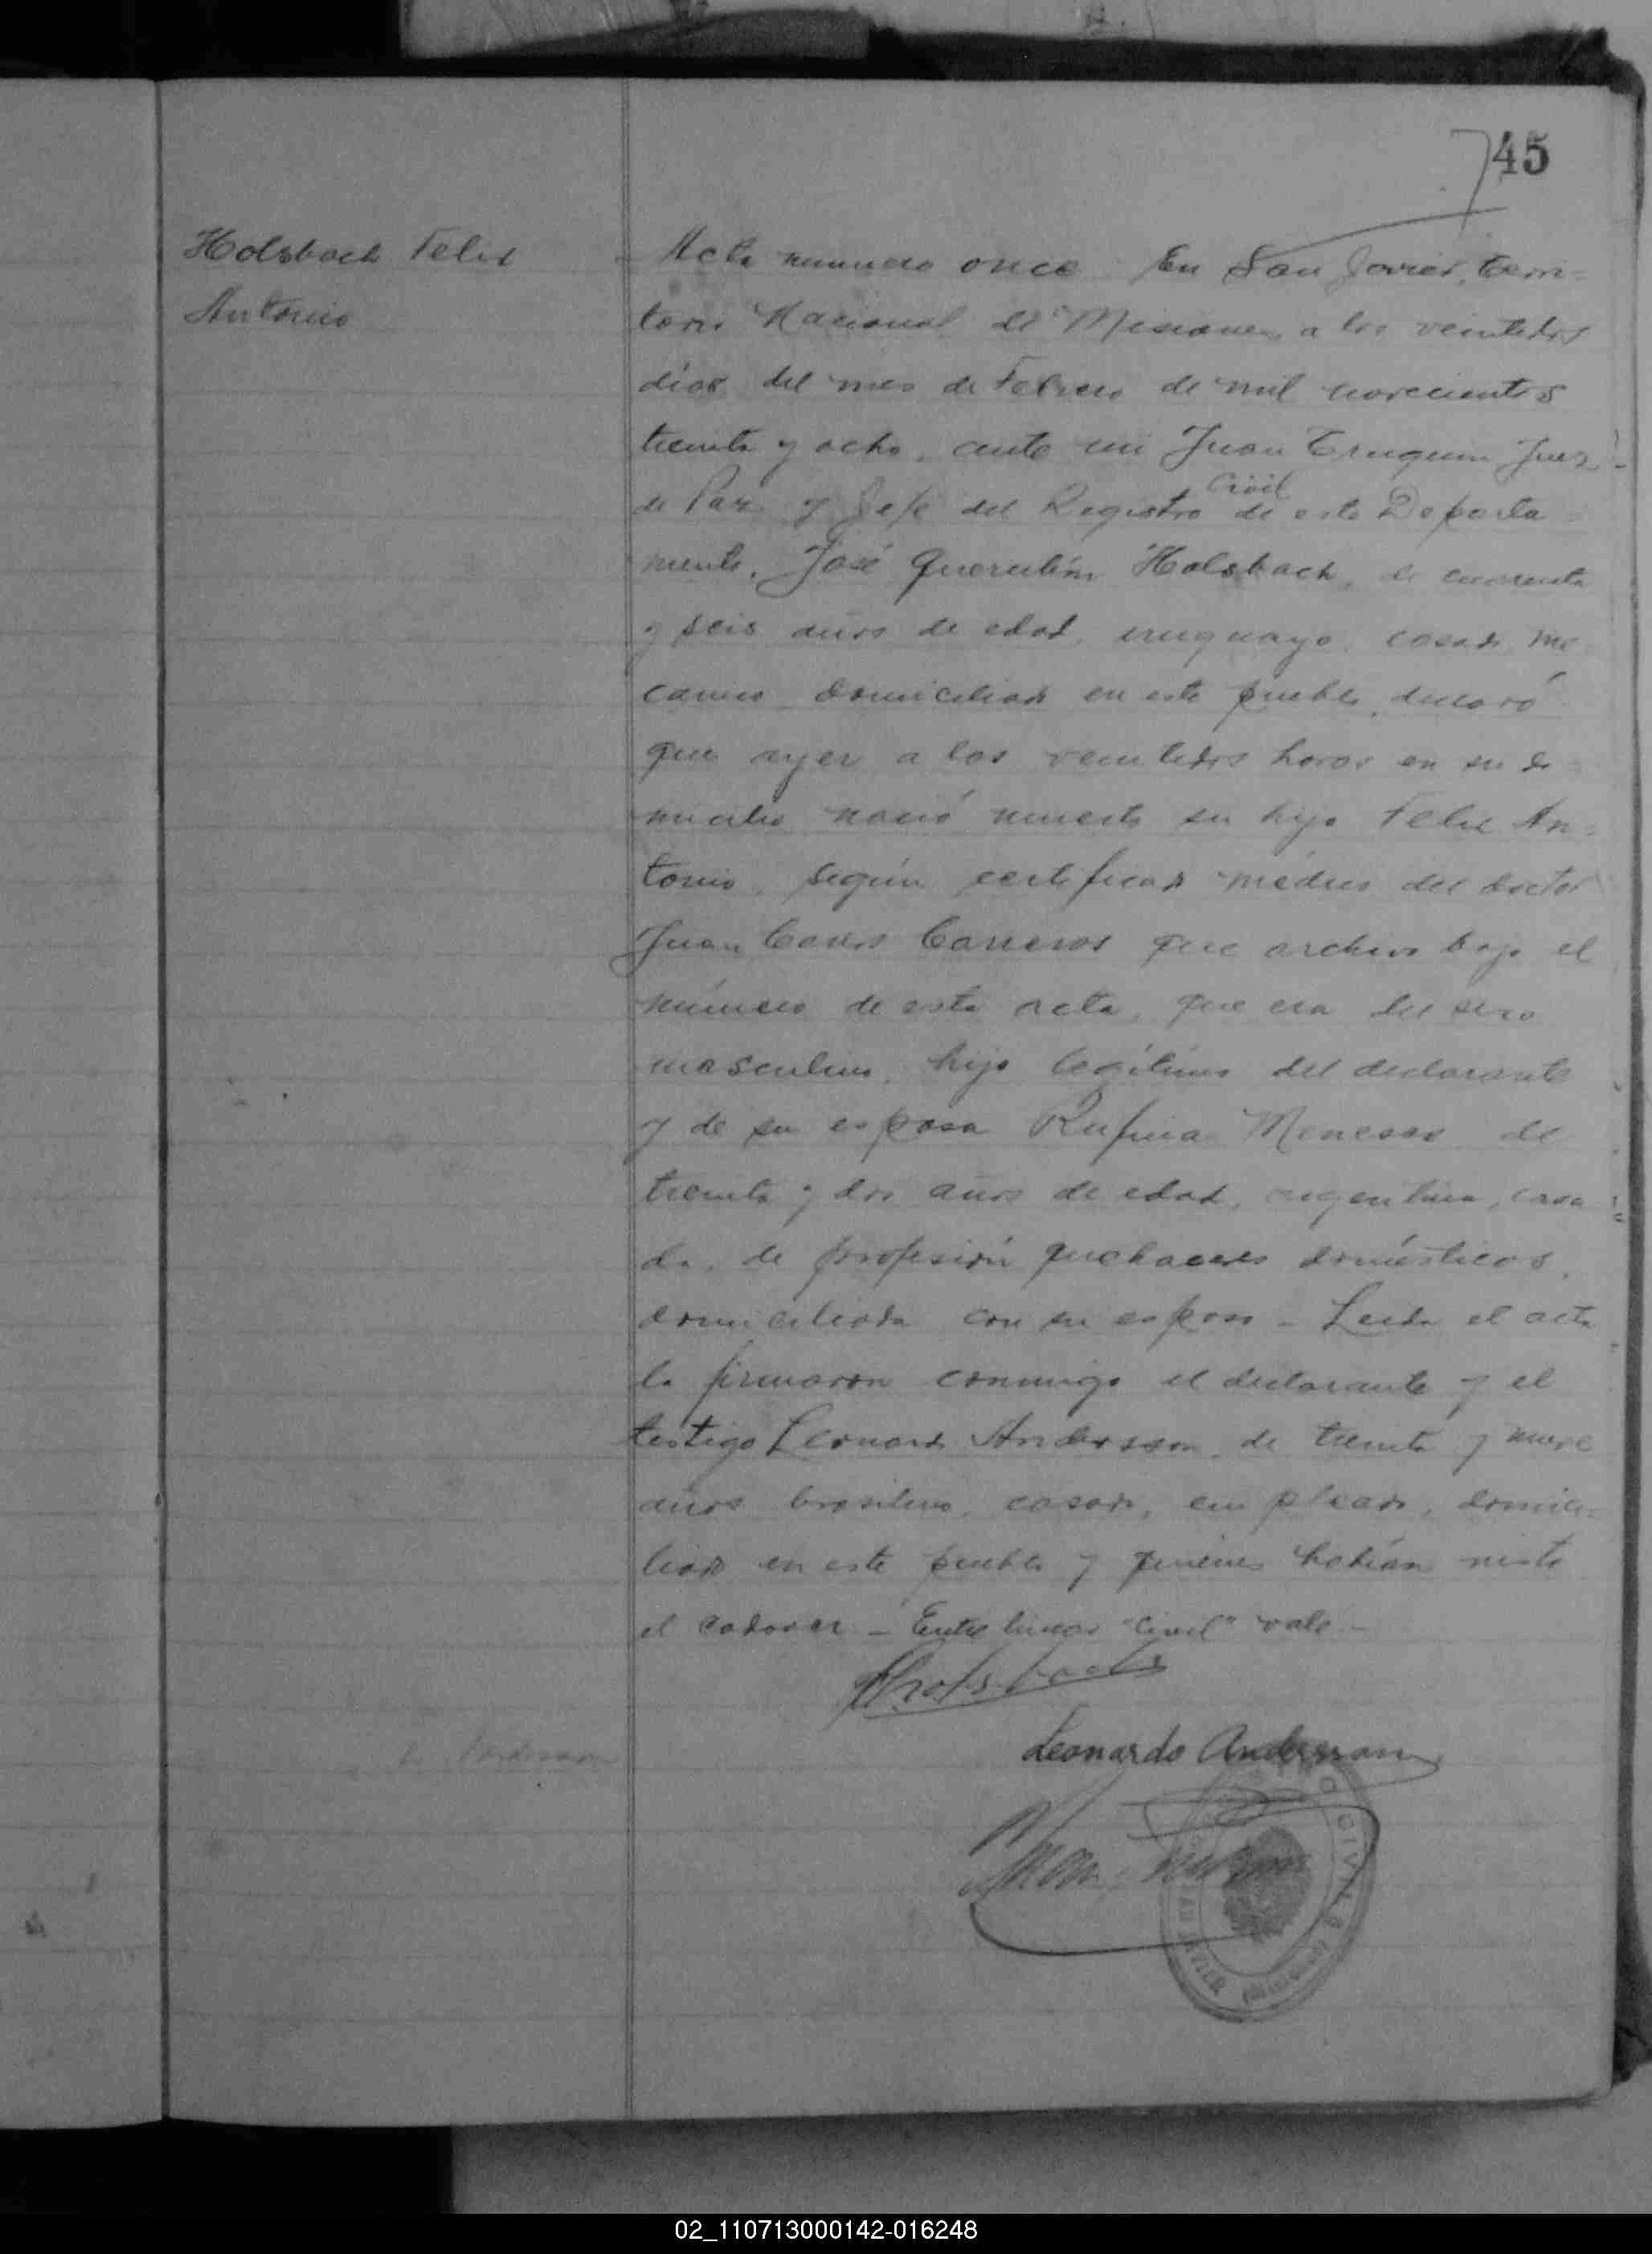 745
Holsbach Felix
Antonio
Acta numero once. En San Javier, terri-
torio Nacional de Misiones a los veintidos
dias del mes de Febrero de mil novecientos
treinta y ocho, ante mi Juan Juez
de Paz y Jefe del Registro Civil de este Departa-
mento, José Querubín Holsbach, de cuarenta
y seis años de edad, uruguayo, casado, me
canico domiciliado en este pueblo, declaró
que ayer a las veintidos horas en su do-
micilio nació muerto su hijo Felix An-
tonio, según certificado médico del doctor
Juan Carlos Carreras que archivo bajo el
número de esta acta, que era del sexo
masculino, hijo legítimo del declarante
y de su esposa Rufina Meneses de
treinta y dos años de edad, argentina, casa-
da, de profesión quehaceres domésticos,
domiciliada con su esposo - Leida el acta
la firmaron conmigo el declarante y el
testigo Leonardo Andersson, de treinta y nueve
años brasilero, casado, empleado, domici-
liado en este pueblo y quienes habian visto
el cadaver - Entre lineas "civil" vale -
Holsbach
Leonardo Andersson
Juan
CIVIL
JAVIER
02_110713000142-016248